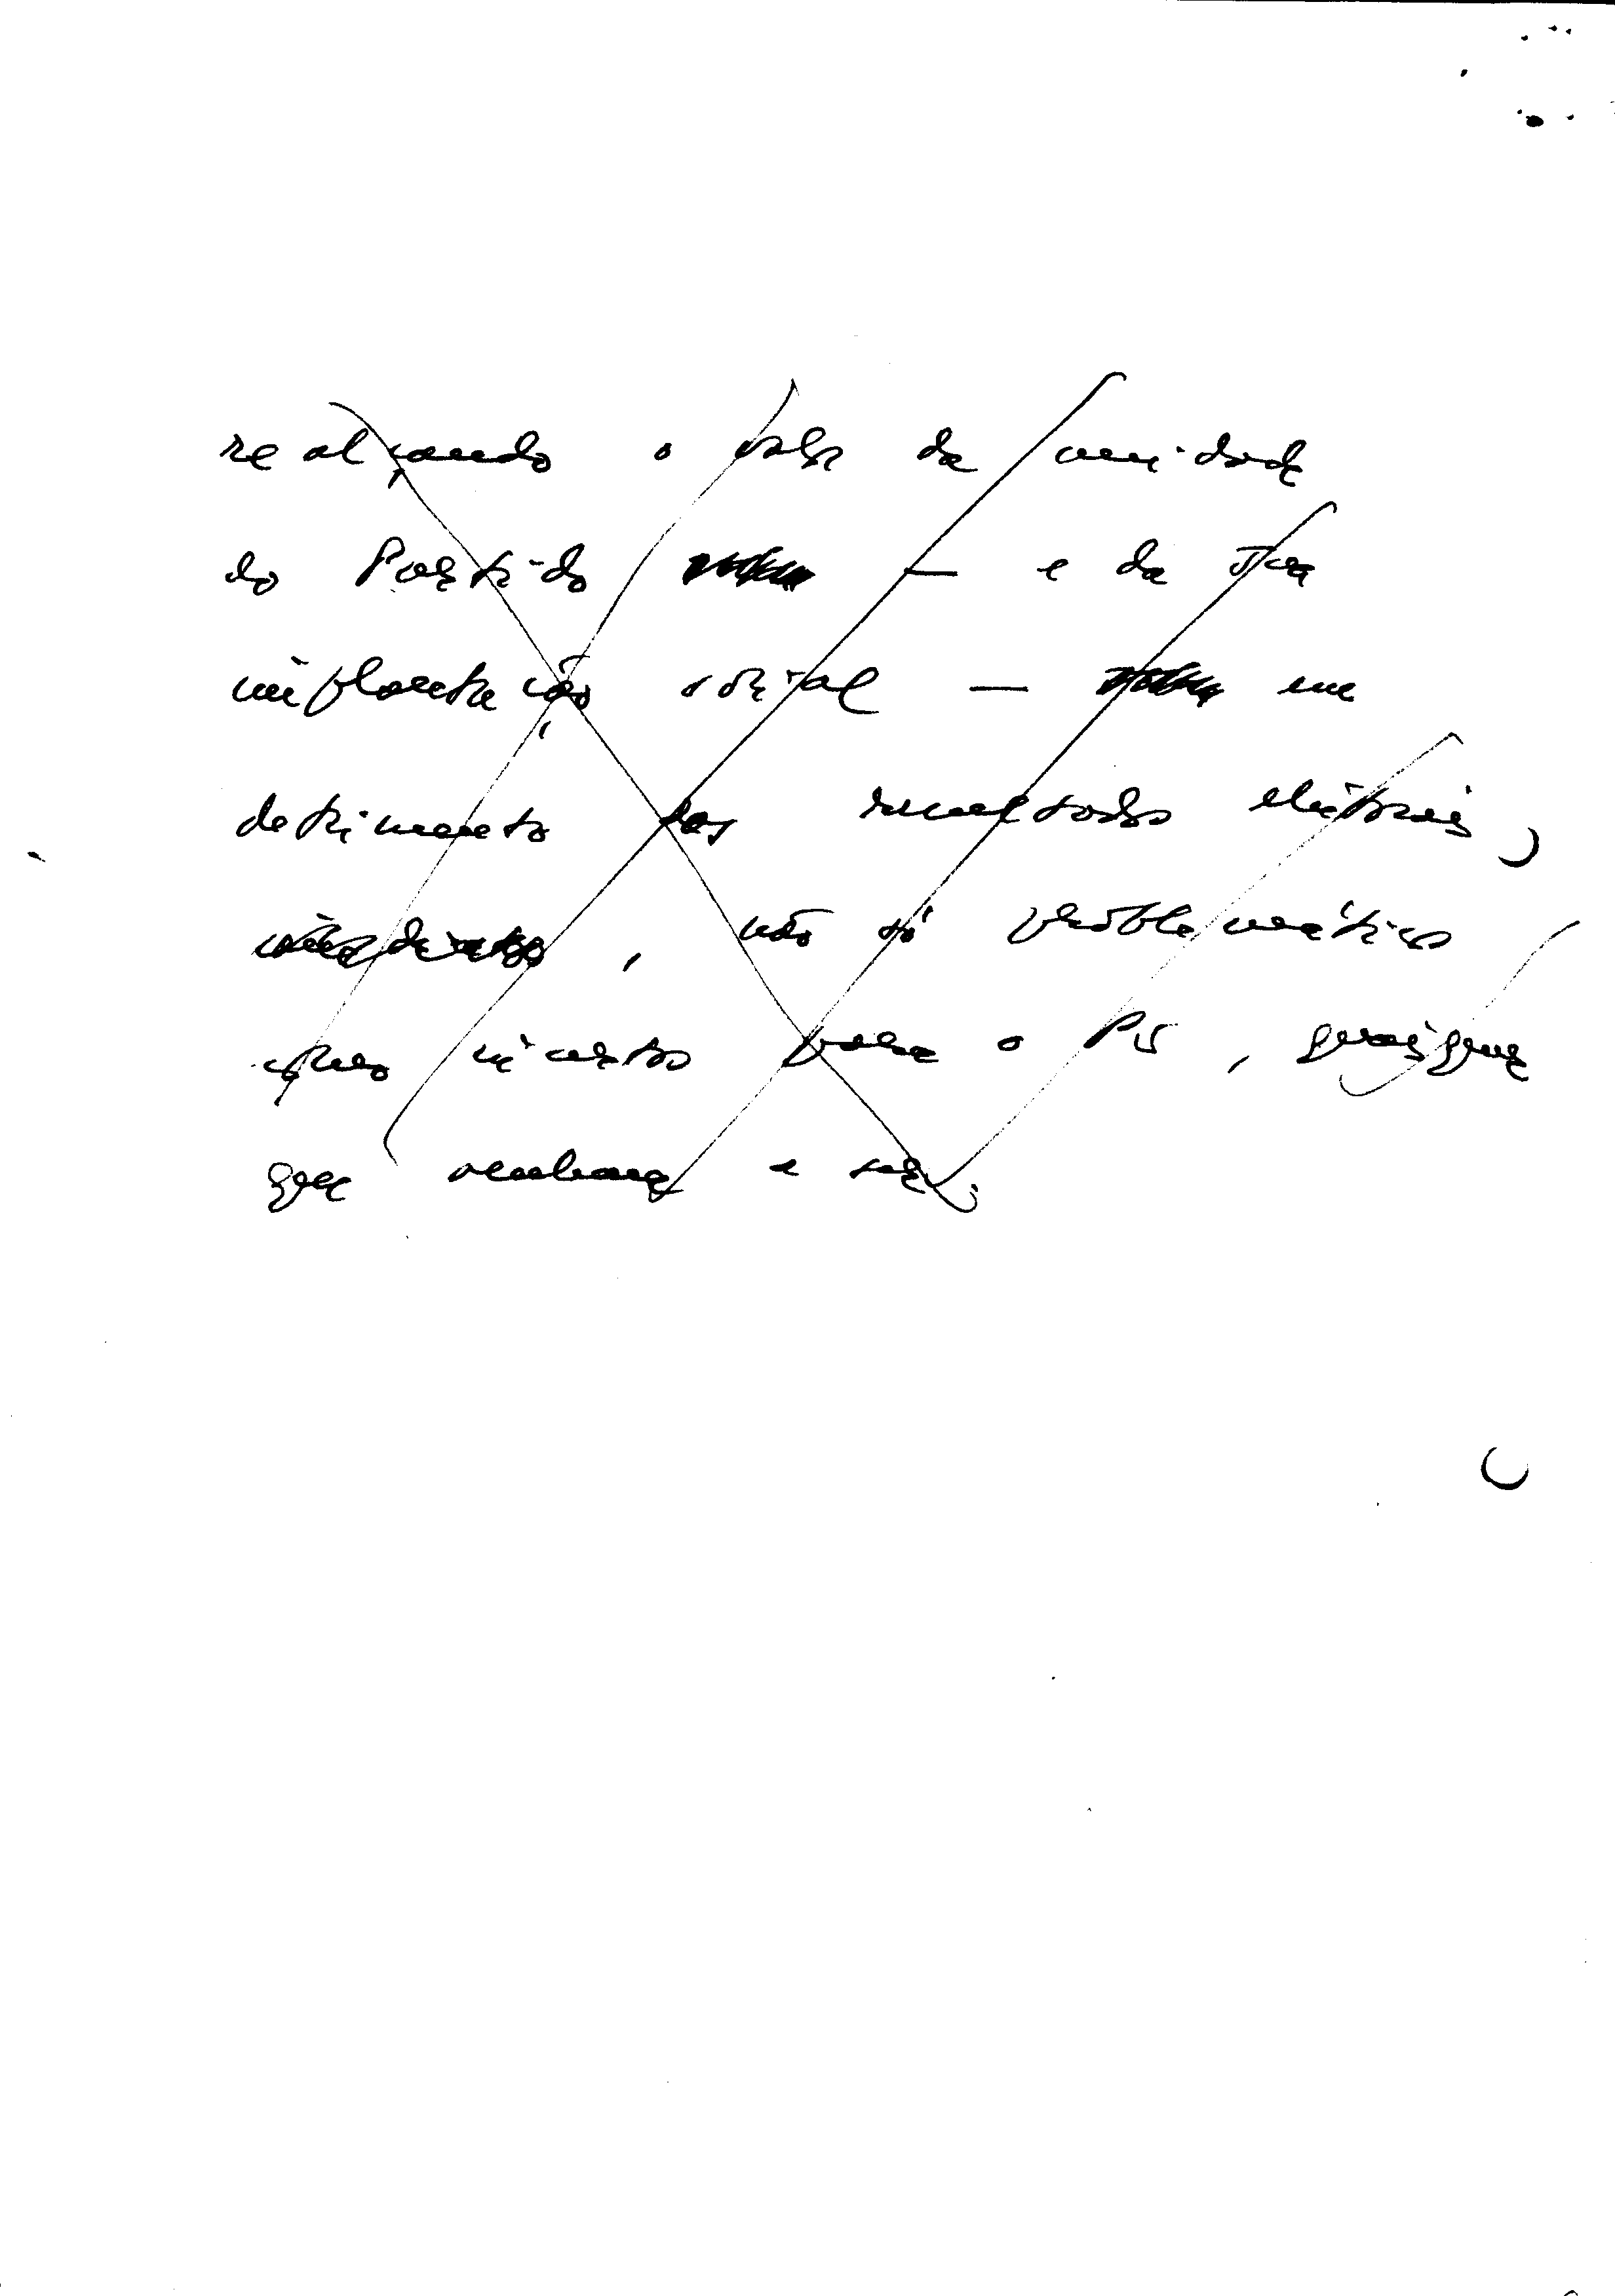 realçando o valor da unidade
do Partido — e da sua
implantação social — em
detrimento dos resultados eleitorais,
, não só problemáticos
como incertos para o PS, quaisquer
que venham a ser;